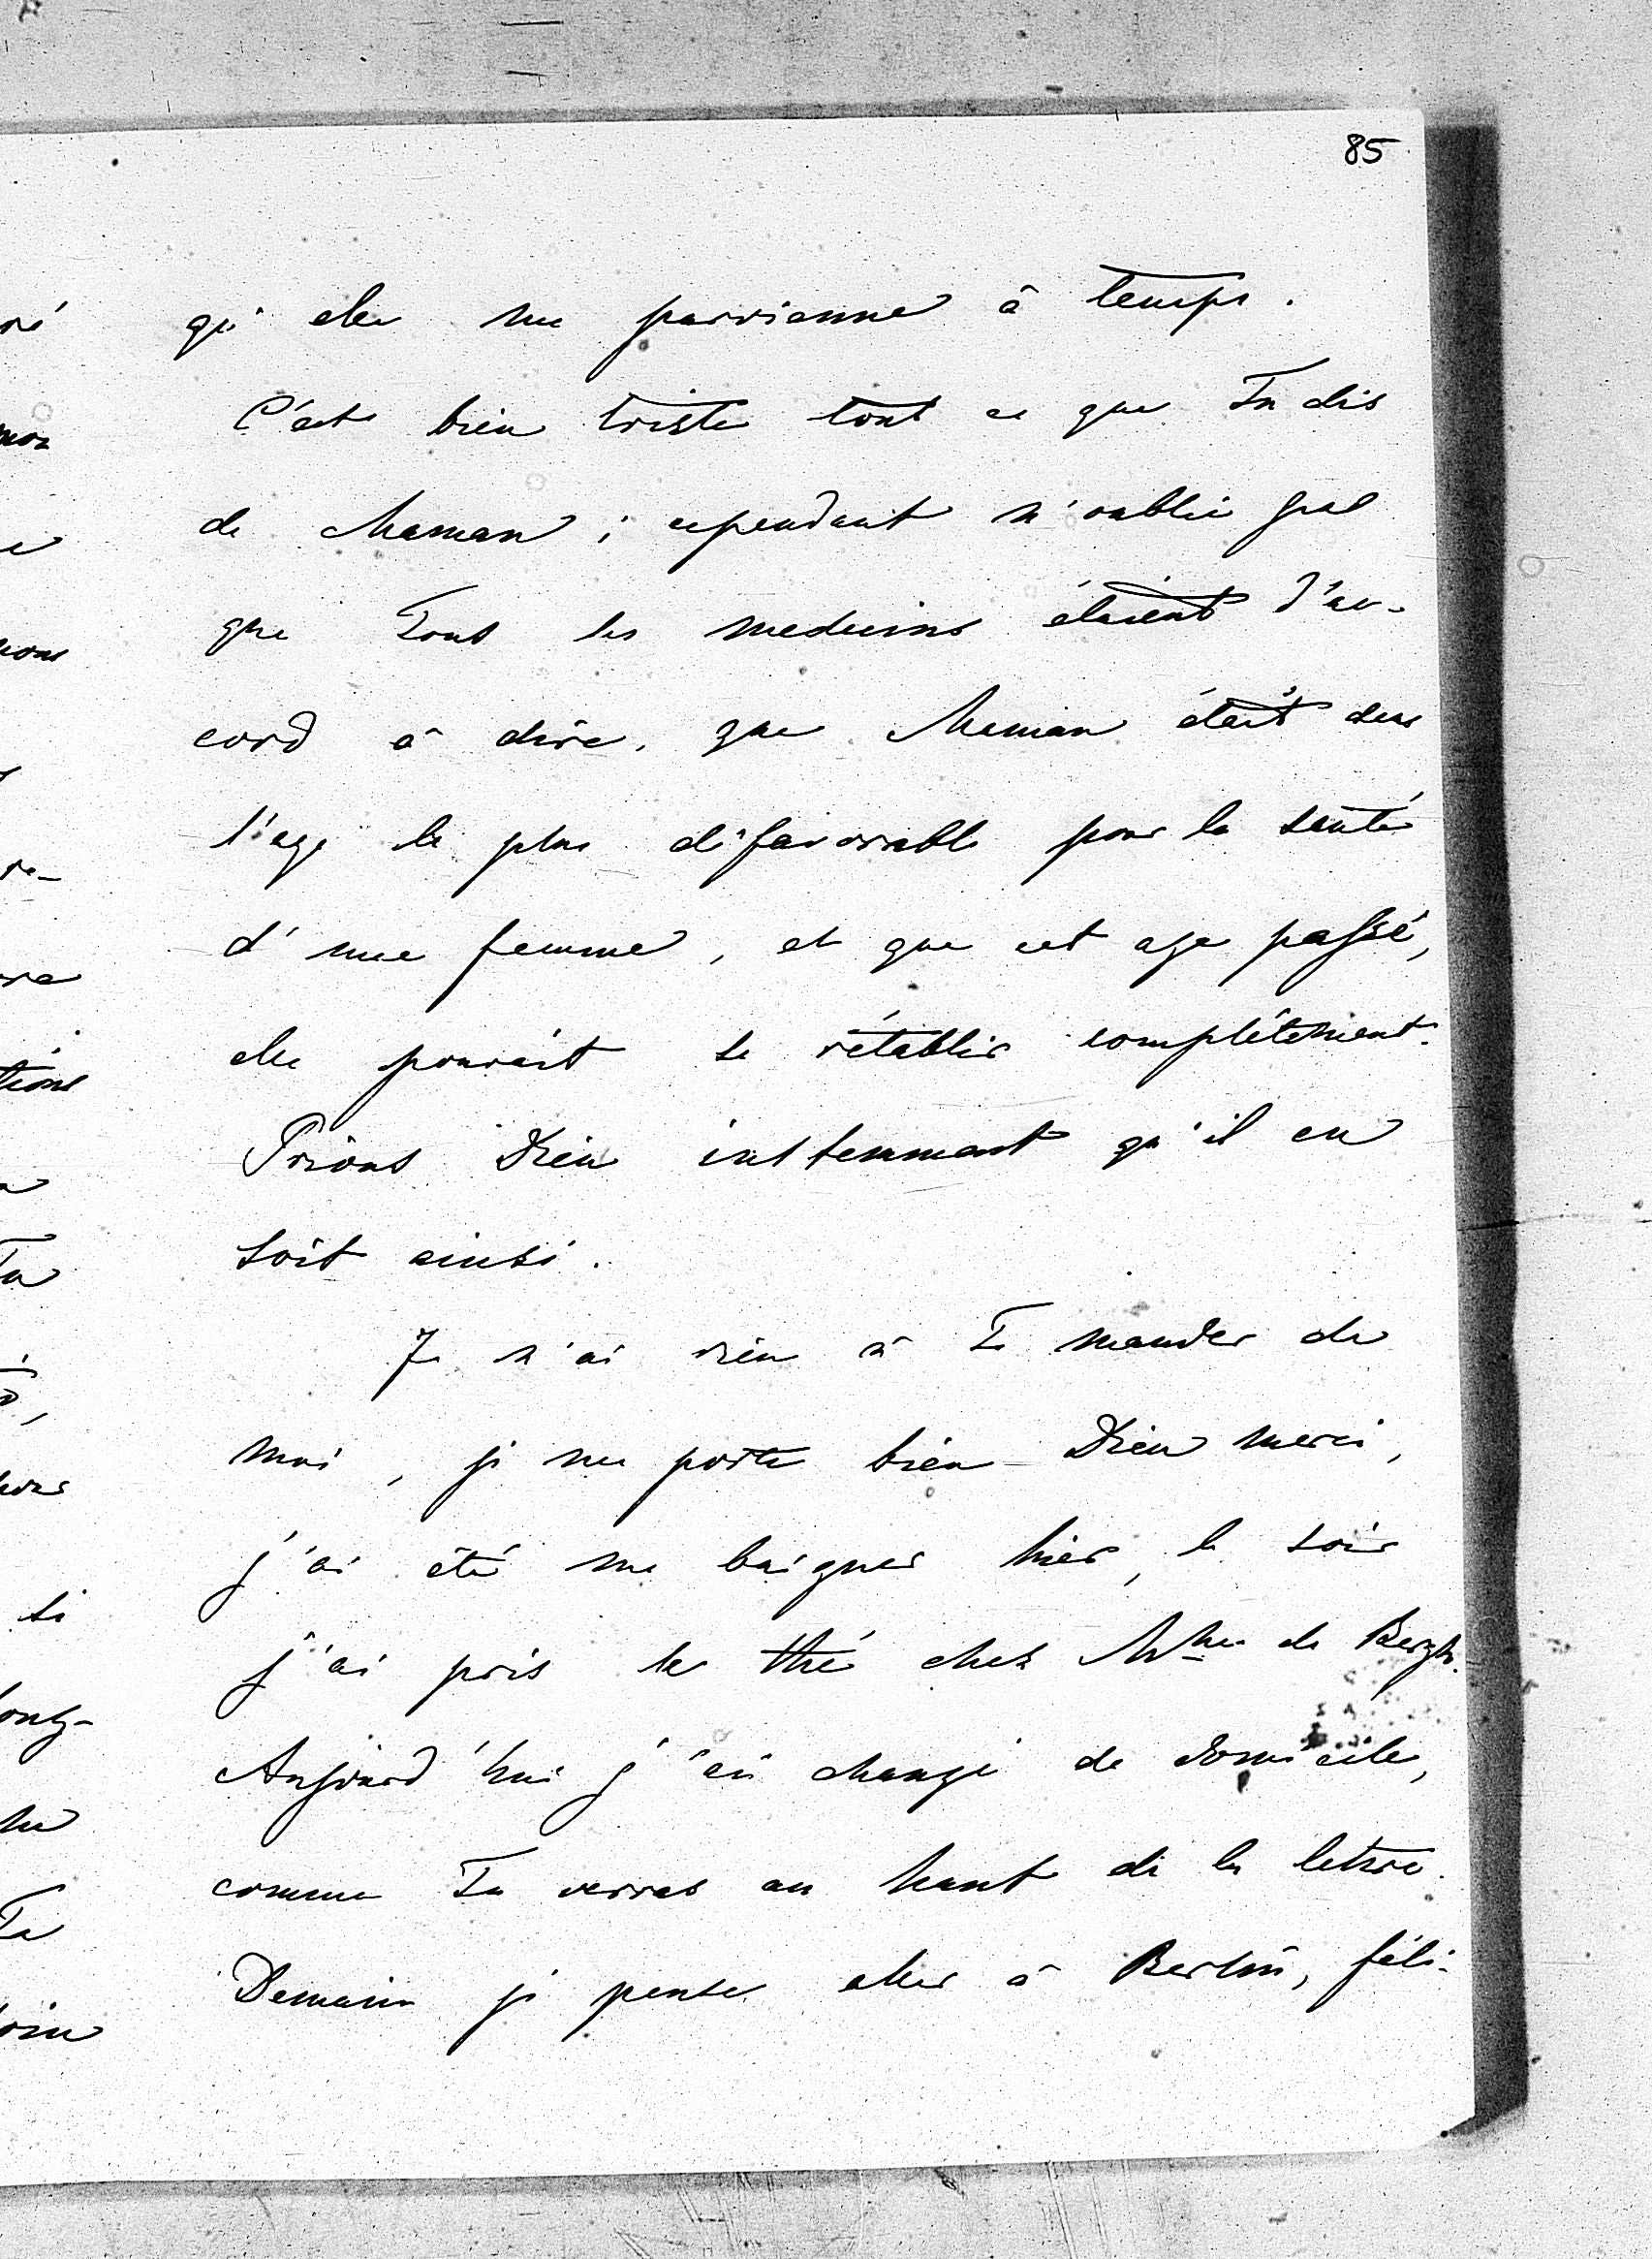 85
qu'elle me parvienne à temps.
C'est bien triste tout ce que Tu dis
de Maman ; cependant n'oublie pas
que Tous les medecins étaient d'ac-
cord à dire, que Maman était dans
l'age le plus défavorable pour la santé
d'une femme, et que cet age passé,
elle pouvait se rétablir complétement.
Prions Dieu instemment qu'il en
soit ainsi.
Je n'ai rien à Te mander de
moi, je me porte bien Dieu merci,
j'ai été me baigner hier, le soir
j'ai pris le thé chez Mme de Bergh.
Aujourd'hui j'ai changé de domicile,
comme Tu verras au haut de la lettre.
Demain je pense aller à Berlin, féli-